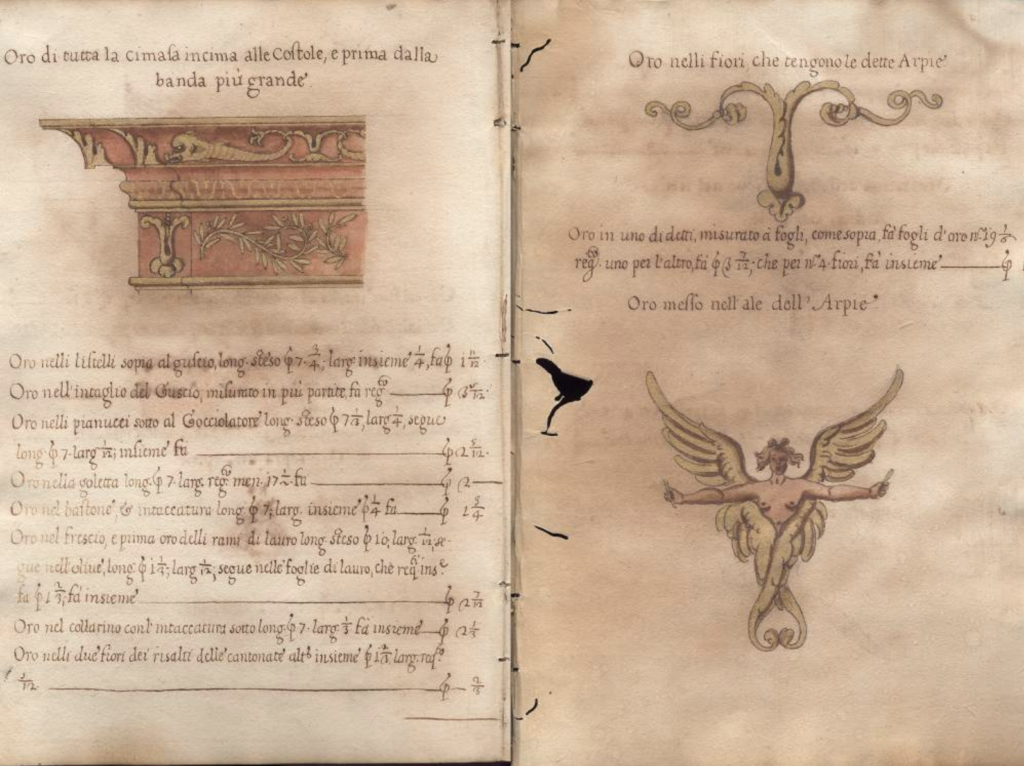 Oro di tutta la cimasa incima alle Costole, e prima dalla
banda più grande
Oro nelli listelli sopra al guscio, long. steso ϕ 7 - 3/4; larg. insieme 1/4, fa ϕ 1
Oro nell'intaglio del Guscio, misurato in più partite, fa reg.
Oro nelli pianucci sotto al Gocciolatore long. steso ϕ 7 1/2, larg. 1/4, segue
long. ϕ 7 - larg. 1/12; insieme fa ϕ 2 5/12
Oro nella goletta long. ϕ 7 - larg. reg. men. 17 1/2 - fa ϕ 2
Oro nel bastone, & intaccatura long. ϕ 7; larg. insieme ϕ 1/4 fa ϕ 1
Oro nel frescio, e prima oro delli rami di lauro long. steso ϕ 10, larg. 1/12, se-
gue nell'olive, long. ϕ 1 1/4; larg. 1/12; segue nelle foglie di lauro, che req. ins.
fa ϕ 1 2/3; fa insieme ϕ 2 7/12
Oro nel collarino con l'intaccatura sotto long. ϕ 7 - larg. 1/3 fa insieme ϕ 2 1/3
Oro nelli due fiori dei risalti delle cantonate alt. insieme ϕ 1 larg.
ϕ
Oro nelli fiori che tengono le dette Arpie
Oro in uno di detti, misurato a fogli, come sopra, fa fogli d'oro n.º 19
reg. uno per l'altro, fa ϕ che per n.º 4 - fiori, fa insieme ϕ
Oro messo nell'ale dell'Arpie